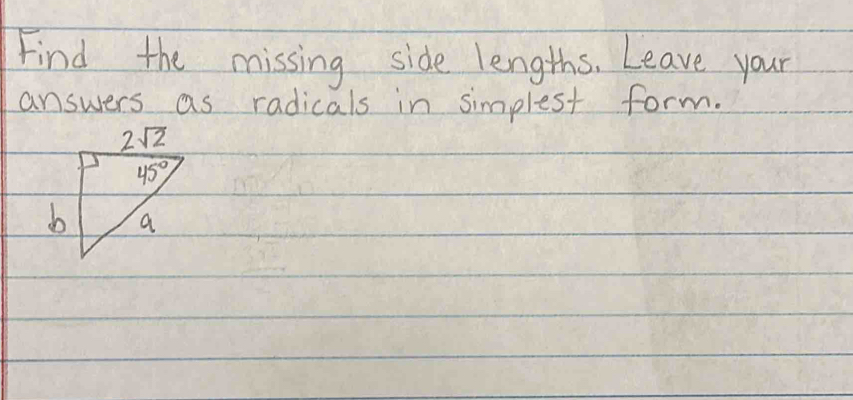 Find the missing side lengths. Leave your
answers as radicals in simplest form.
2√2
45°
b
a